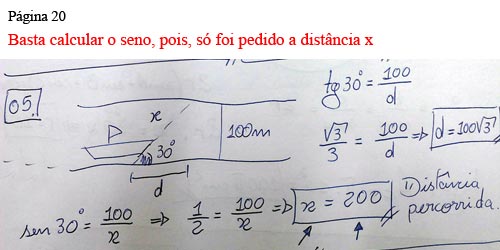 Página 20
Basta calcular o seno, pois, só foi pedido a distância x
05.
x
30°
100m
d
tg 30° = 100/d
√3/3 = 100/d => d = 100√3
sen 30° = 100/x => 1/2 = 100/x => x = 200
Distância percorrida.